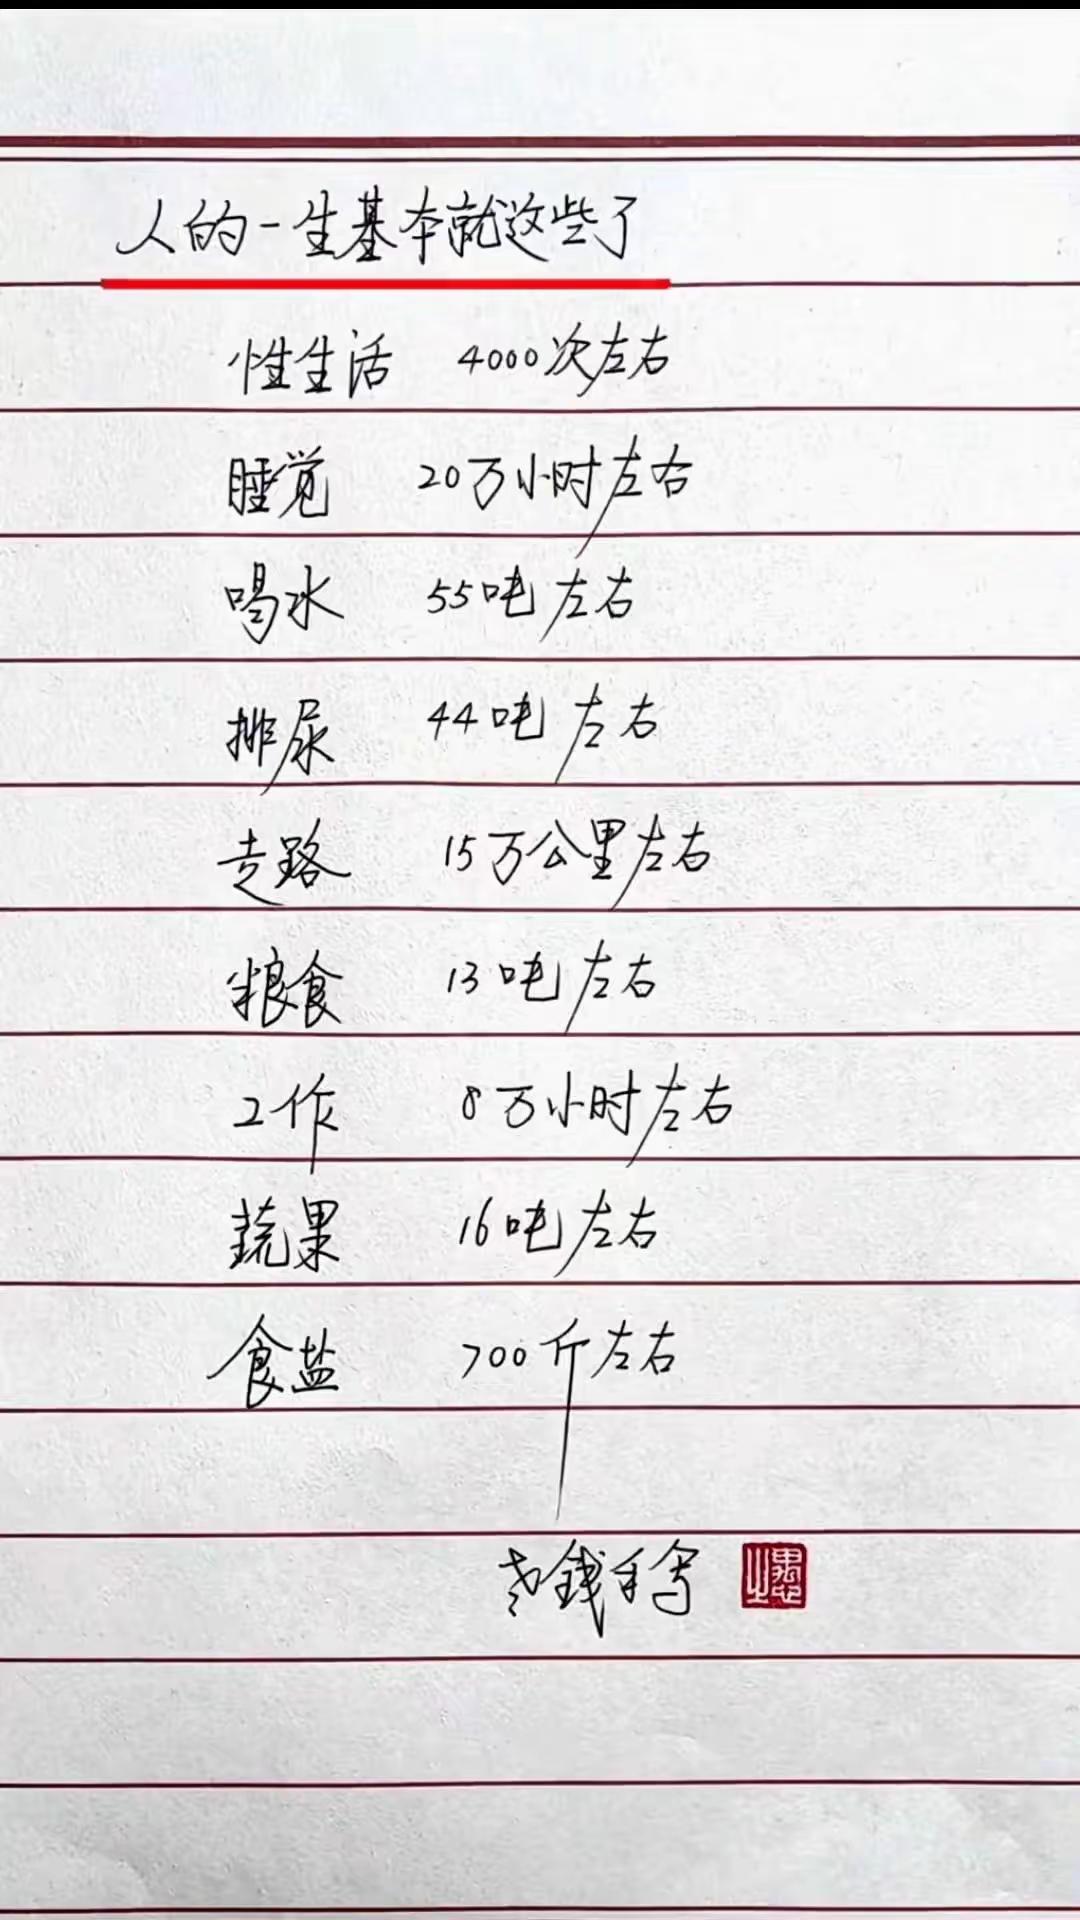 人的一生基本就这些了
性生活 4000次左右
睡觉 20万小时左右
喝水 55吨左右
排尿 44吨左右
走路 15万公里左右
粮食 13吨左右
工作 8万小时左右
蔬果 16吨左右
食盐 700斤左右
老钱手写